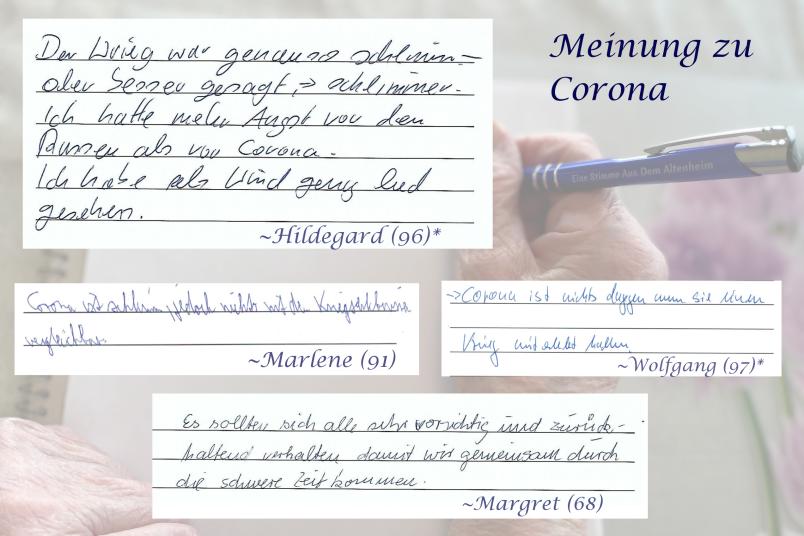 Meinung zu
Corona
Der Krieg war genauso schlimm –
oder besser gesagt, → schlimmer.
Ich hatte mehr Angst vor den
Russen als vor Corona.
Ich habe als Kind genug Leid
gesehen.
~Hildegard (96)*
Eine Stimme Aus Dem Altenheim
Corona ist schlimm, jedoch nicht mit den
vergleichbar.
~Marlene (91)
→Corona ist nichts dagegen wenn sie einen
Krieg miterlebt haben
~Wolfgang (97)*
Es sollten sich alle sehr vorsichtig und zurück-
haltend verhalten damit wir gemeinsam durch
die schwere Zeit kommen.
~Margret (68)